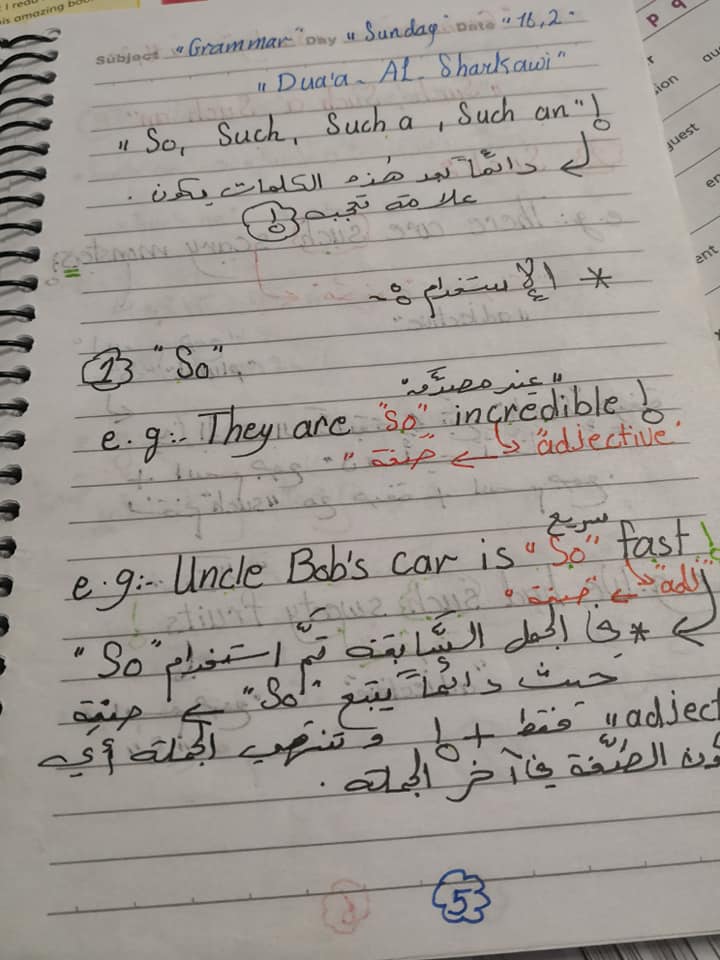 I read
is amazing bo
Subject "Grammar" Day "Sunday" Date "16,2.
"Dua'a - AL-Sharkawi"
"So, Such, Such a, Such an"!
دائمًا بعد هذه الكلمات يكون
علامة تعجب (!)
* الإستخدام :-
1 "So".
"عند مصدقه"
e.g:- They are "so" incredible!
"adjective" صفة "
سريع
e.g:- Uncle Bob's car is "So" fast!
"adj" صفة "
* في الجمل السابقة تمَّ استخدام "So"
حيث دائمًا يتبع "So" صفة
"adject فقط + ! وتنتهي الجملة أي
ون الصّفة في آخر الجملة .
5
p q
r
sion
au
quest
en
ent